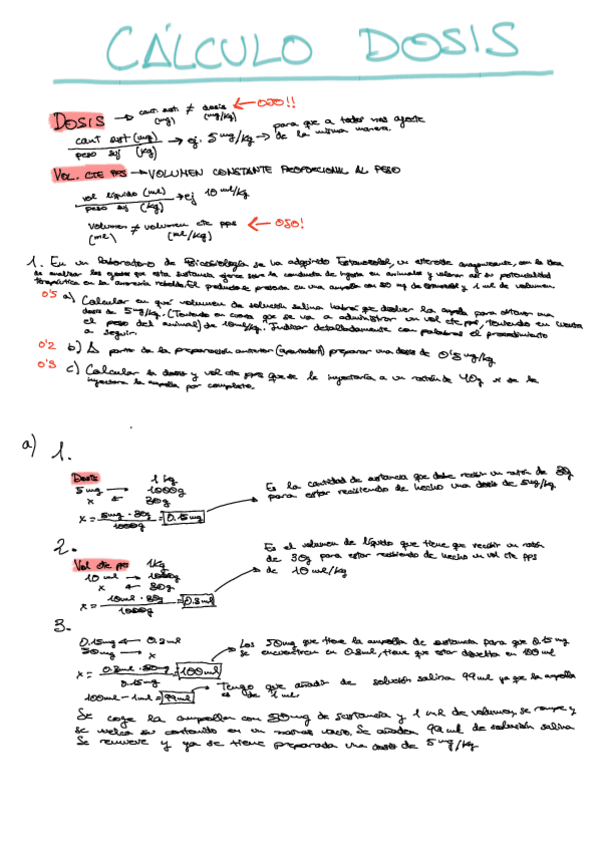 CÁLCULO DOSIS
DOSIS → cant sust (mg) ≠ dosis (mg/kg) ← OJO!!
cant sust (mg) / peso suj (kg) → ej. 5 mg/kg → para que a todos nos afecte de la misma manera.
VOL. CTE PPS → VOLUMEN CONSTANTE PROPORCIONAL AL PESO
vol líquido (ml) / peso suj (kg) → ej 10 ml/kg
volumen (ml) ≠ volumen cte pps (ml/kg) ← OJO!
1. En un laboratorio de Psicobiología se ha adquirido Estanozolol, un esteroide anabolizante, con la idea
de analizar los efectos que esta sustancia ejerce sobre la conducta de ingesta en animales y valorar así su potencialidad
terapéutica en la anorexia. El producto se presenta en una ampolla con 50 mg de Estanozolol y 1 ml de volumen
0'5 a) Calcular en qué volumen de solución salina habrá que disolver la ampolla para obtener una
dosis de 5 mg/kg. (Teniendo en cuenta que se va a administrar un vol cte pps, teniendo en cuenta
el peso del animal) de 10 ml/kg. Indicar detalladamente con palabras el procedimiento
a seguir.
0'2 b) A partir de la preparación anterior (apartado a) preparar una dosis de 0'5 mg/kg
0'3 c) Calcular la dosis y vol cte pps que se le inyectaría a un ratón de 40g si se le
inyectara la ampolla por completo.
a) 1.
Dosis
5 mg → 1 kg 1000g
x ← 30g
x = 5mg · 30g / 1000g = 0.15 mg
Es la cantidad de sustancia que debe recibir un ratón de 30g
para estar recibiendo de hecho una dosis de 5mg/kg
2.
Vol cte pps 1kg
10 ml → 1000g
x ← 30g
x = 10ml · 30g / 1000g = 0.3 ml
Es el volumen de líquido que tiene que recibir un ratón
de 30g para estar recibiendo de hecho un vol cte pps
de 10 ml/kg
3.
0.15mg ← 0.3ml
50mg → x
x = 0.3ml · 50mg / 0.15mg = 100ml
Los 50mg que tiene la ampolla de sustancia para que 0.15 mg
se encuentren en 0.3ml, tiene que estar disuelta en 100 ml
100ml - 1ml = 99ml → Tengo que añadir de solución salina 99 ml ya que la ampolla
es de 1 ml.
Se coge la ampolla con 50mg de sustancia y 1 ml de volumen, se rompe y
se vuelca su contenido en un matraz vacío. Se añaden 99 ml de solución salina
Se remueve y ya se tiene preparada una dosis de 5 mg/kg